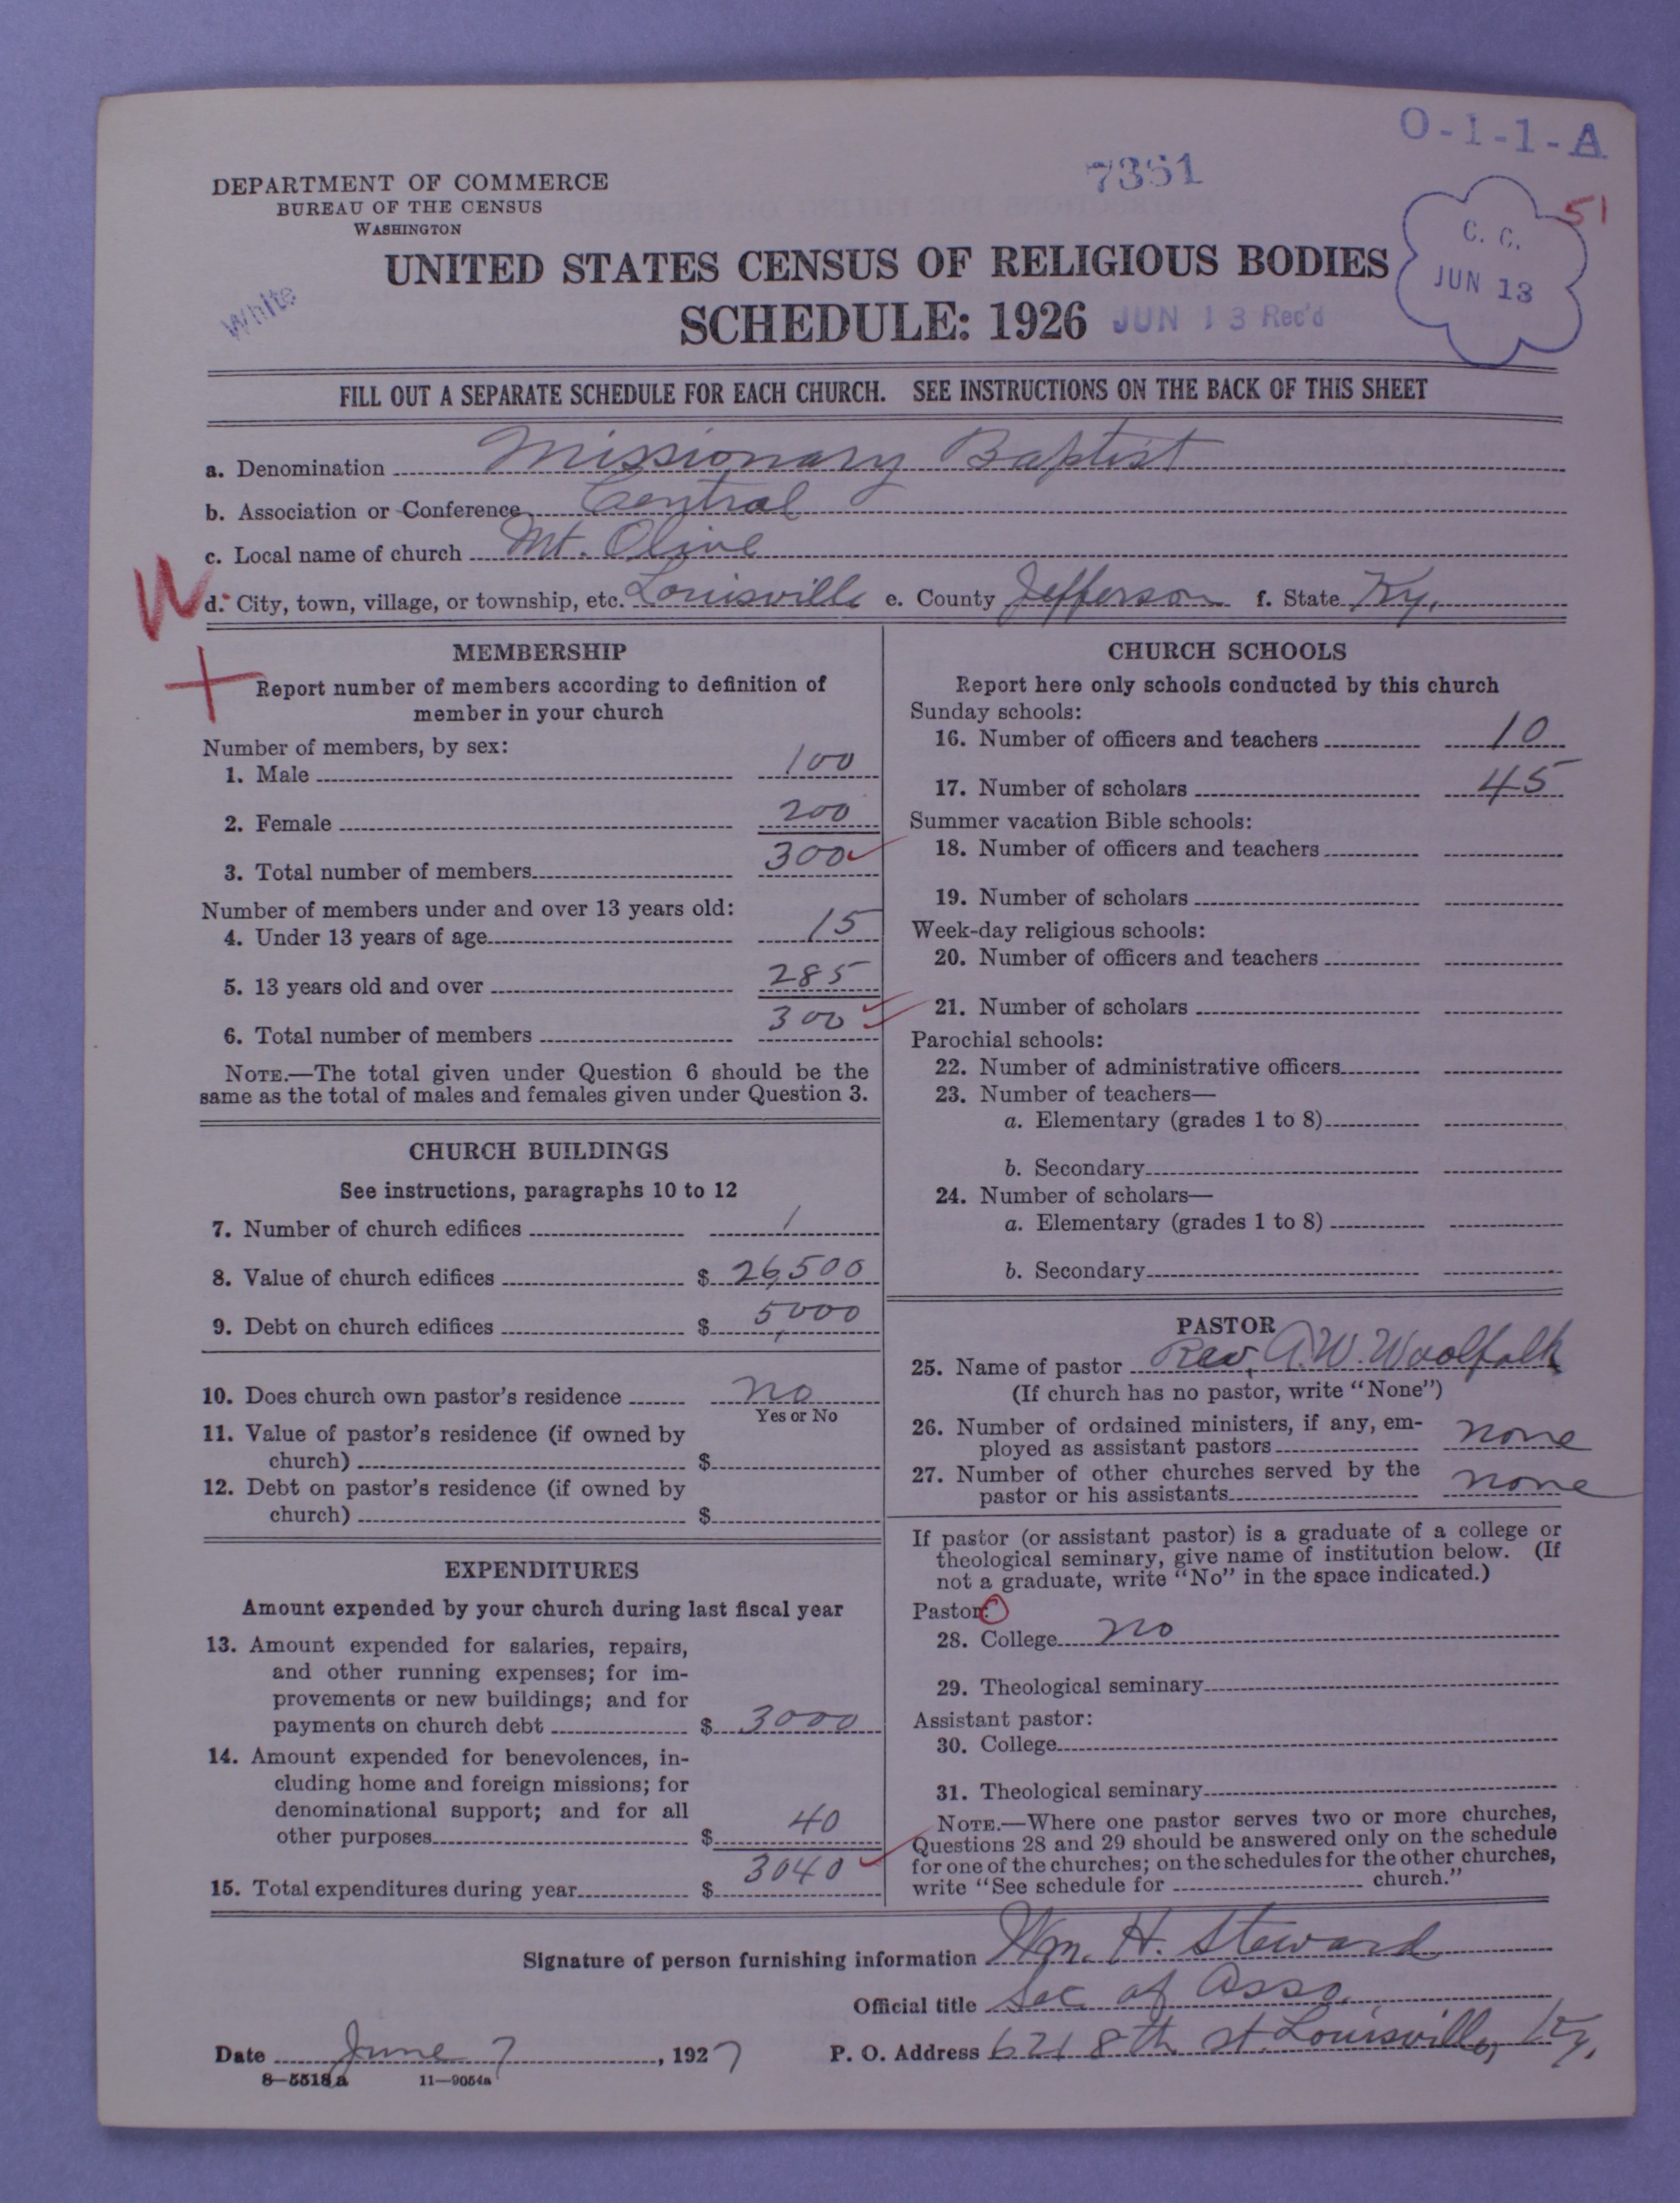 O-1-1-A
7361
51
DEPARTMENT OF COMMERCE
BUREAU OF THE CENSUS
WASHINGTON
C. C.
JUN 13
UNITED STATES CENSUS OF RELIGIOUS BODIES
White
SCHEDULE: 1926 JUN 13 Rec'd
FILL OUT A SEPARATE SCHEDULE FOR EACH CHURCH. SEE INSTRUCTIONS ON THE BACK OF THIS SHEET
a. Denomination Missionary Baptist
b. Association or Conference Central
c. Local name of church Mt. Olive
W
d. City, town, village, or township, etc. Louisville e. County Jefferson f. State Ky.
MEMBERSHIP
Report number of members according to definition of
member in your church
Number of members, by sex:
1. Male 100
2. Female 200
3. Total number of members 300
Number of members under and over 13 years old:
4. Under 13 years of age 15
5. 13 years old and over 285
6. Total number of members 300
NOTE.—The total given under Question 6 should be the
same as the total of males and females given under Question 3.
CHURCH BUILDINGS
See instructions, paragraphs 10 to 12
7. Number of church edifices 1
8. Value of church edifices $ 26,500
9. Debt on church edifices $ 5,000
10. Does church own pastor's residence no
Yes or No
11. Value of pastor's residence (if owned by
church) $
12. Debt on pastor's residence (if owned by
church) $
EXPENDITURES
Amount expended by your church during last fiscal year
13. Amount expended for salaries, repairs,
and other running expenses; for im-
provements or new buildings; and for
payments on church debt $ 3000
14. Amount expended for benevolences, in-
cluding home and foreign missions; for
denominational support; and for all
other purposes $ 40
15. Total expenditures during year $ 3040
CHURCH SCHOOLS
Report here only schools conducted by this church
Sunday schools:
16. Number of officers and teachers 10
17. Number of scholars 45
Summer vacation Bible schools:
18. Number of officers and teachers
19. Number of scholars
Week-day religious schools:
20. Number of officers and teachers
21. Number of scholars
Parochial schools:
22. Number of administrative officers
23. Number of teachers—
a. Elementary (grades 1 to 8)
b. Secondary
24. Number of scholars—
a. Elementary (grades 1 to 8)
b. Secondary
PASTOR
25. Name of pastor Rev. A.W. Woolfolk
(If church has no pastor, write "None")
26. Number of ordained ministers, if any, em-
ployed as assistant pastors none
27. Number of other churches served by the
pastor or his assistants none
If pastor (or assistant pastor) is a graduate of a college or
theological seminary, give name of institution below. (If
not a graduate, write "No" in the space indicated.)
Pastor:
28. College no
29. Theological seminary
Assistant pastor:
30. College
31. Theological seminary
NOTE.—Where one pastor serves two or more churches,
Questions 28 and 29 should be answered only on the schedule
for one of the churches; on the schedules for the other churches,
write "See schedule for church."
Signature of person furnishing information Wm. H. Steward
Official title Sec of Asso.
Date June 7, 1927 P. O. Address 621 8th st. Louisville, Ky.
8—5518a 11—9054a